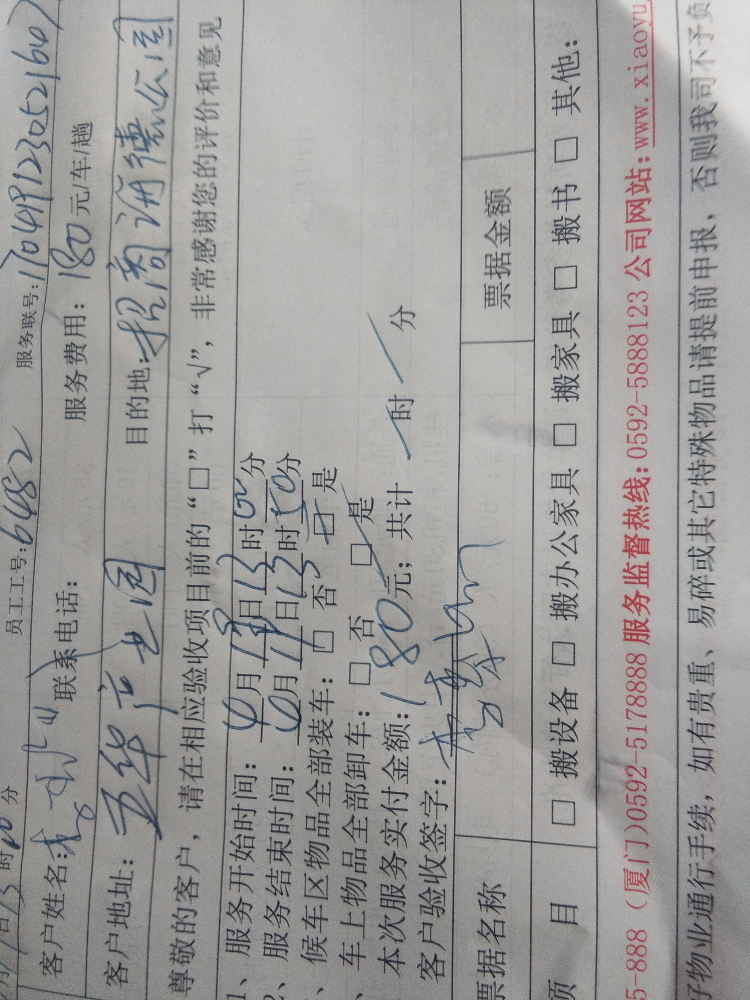 月 日13时20分 员工工号:6482 服务联号:1704191230521607
客户姓名: 联系电话: 服务费用:180元/车/趟
客户地址: 产业园 目的地:招商诵德公园
尊敬的客户,请在相应验收项目前的“□”打“√”,非常感谢您的评价和意见
1、服务开始时间:4月19日13时20分
2、服务结束时间:4月19日13时50分
、候车区物品全部装车:□否 ☑是
、车上物品全部卸车:□否 ☑是
本次服务实付金额:180元;共计 时 分
客户验收签字:
票据名称 票据金额
项 目 □搬设备 □搬办公家具 □搬家具 □搬书 □其他:
5-888 (厦门)0592-5178888 服务监督热线:0592-5888123 公司网站:www.xiaoyu
好物业通行手续,如有贵重、易碎或其它特殊物品请提前申报,否则我司不予负